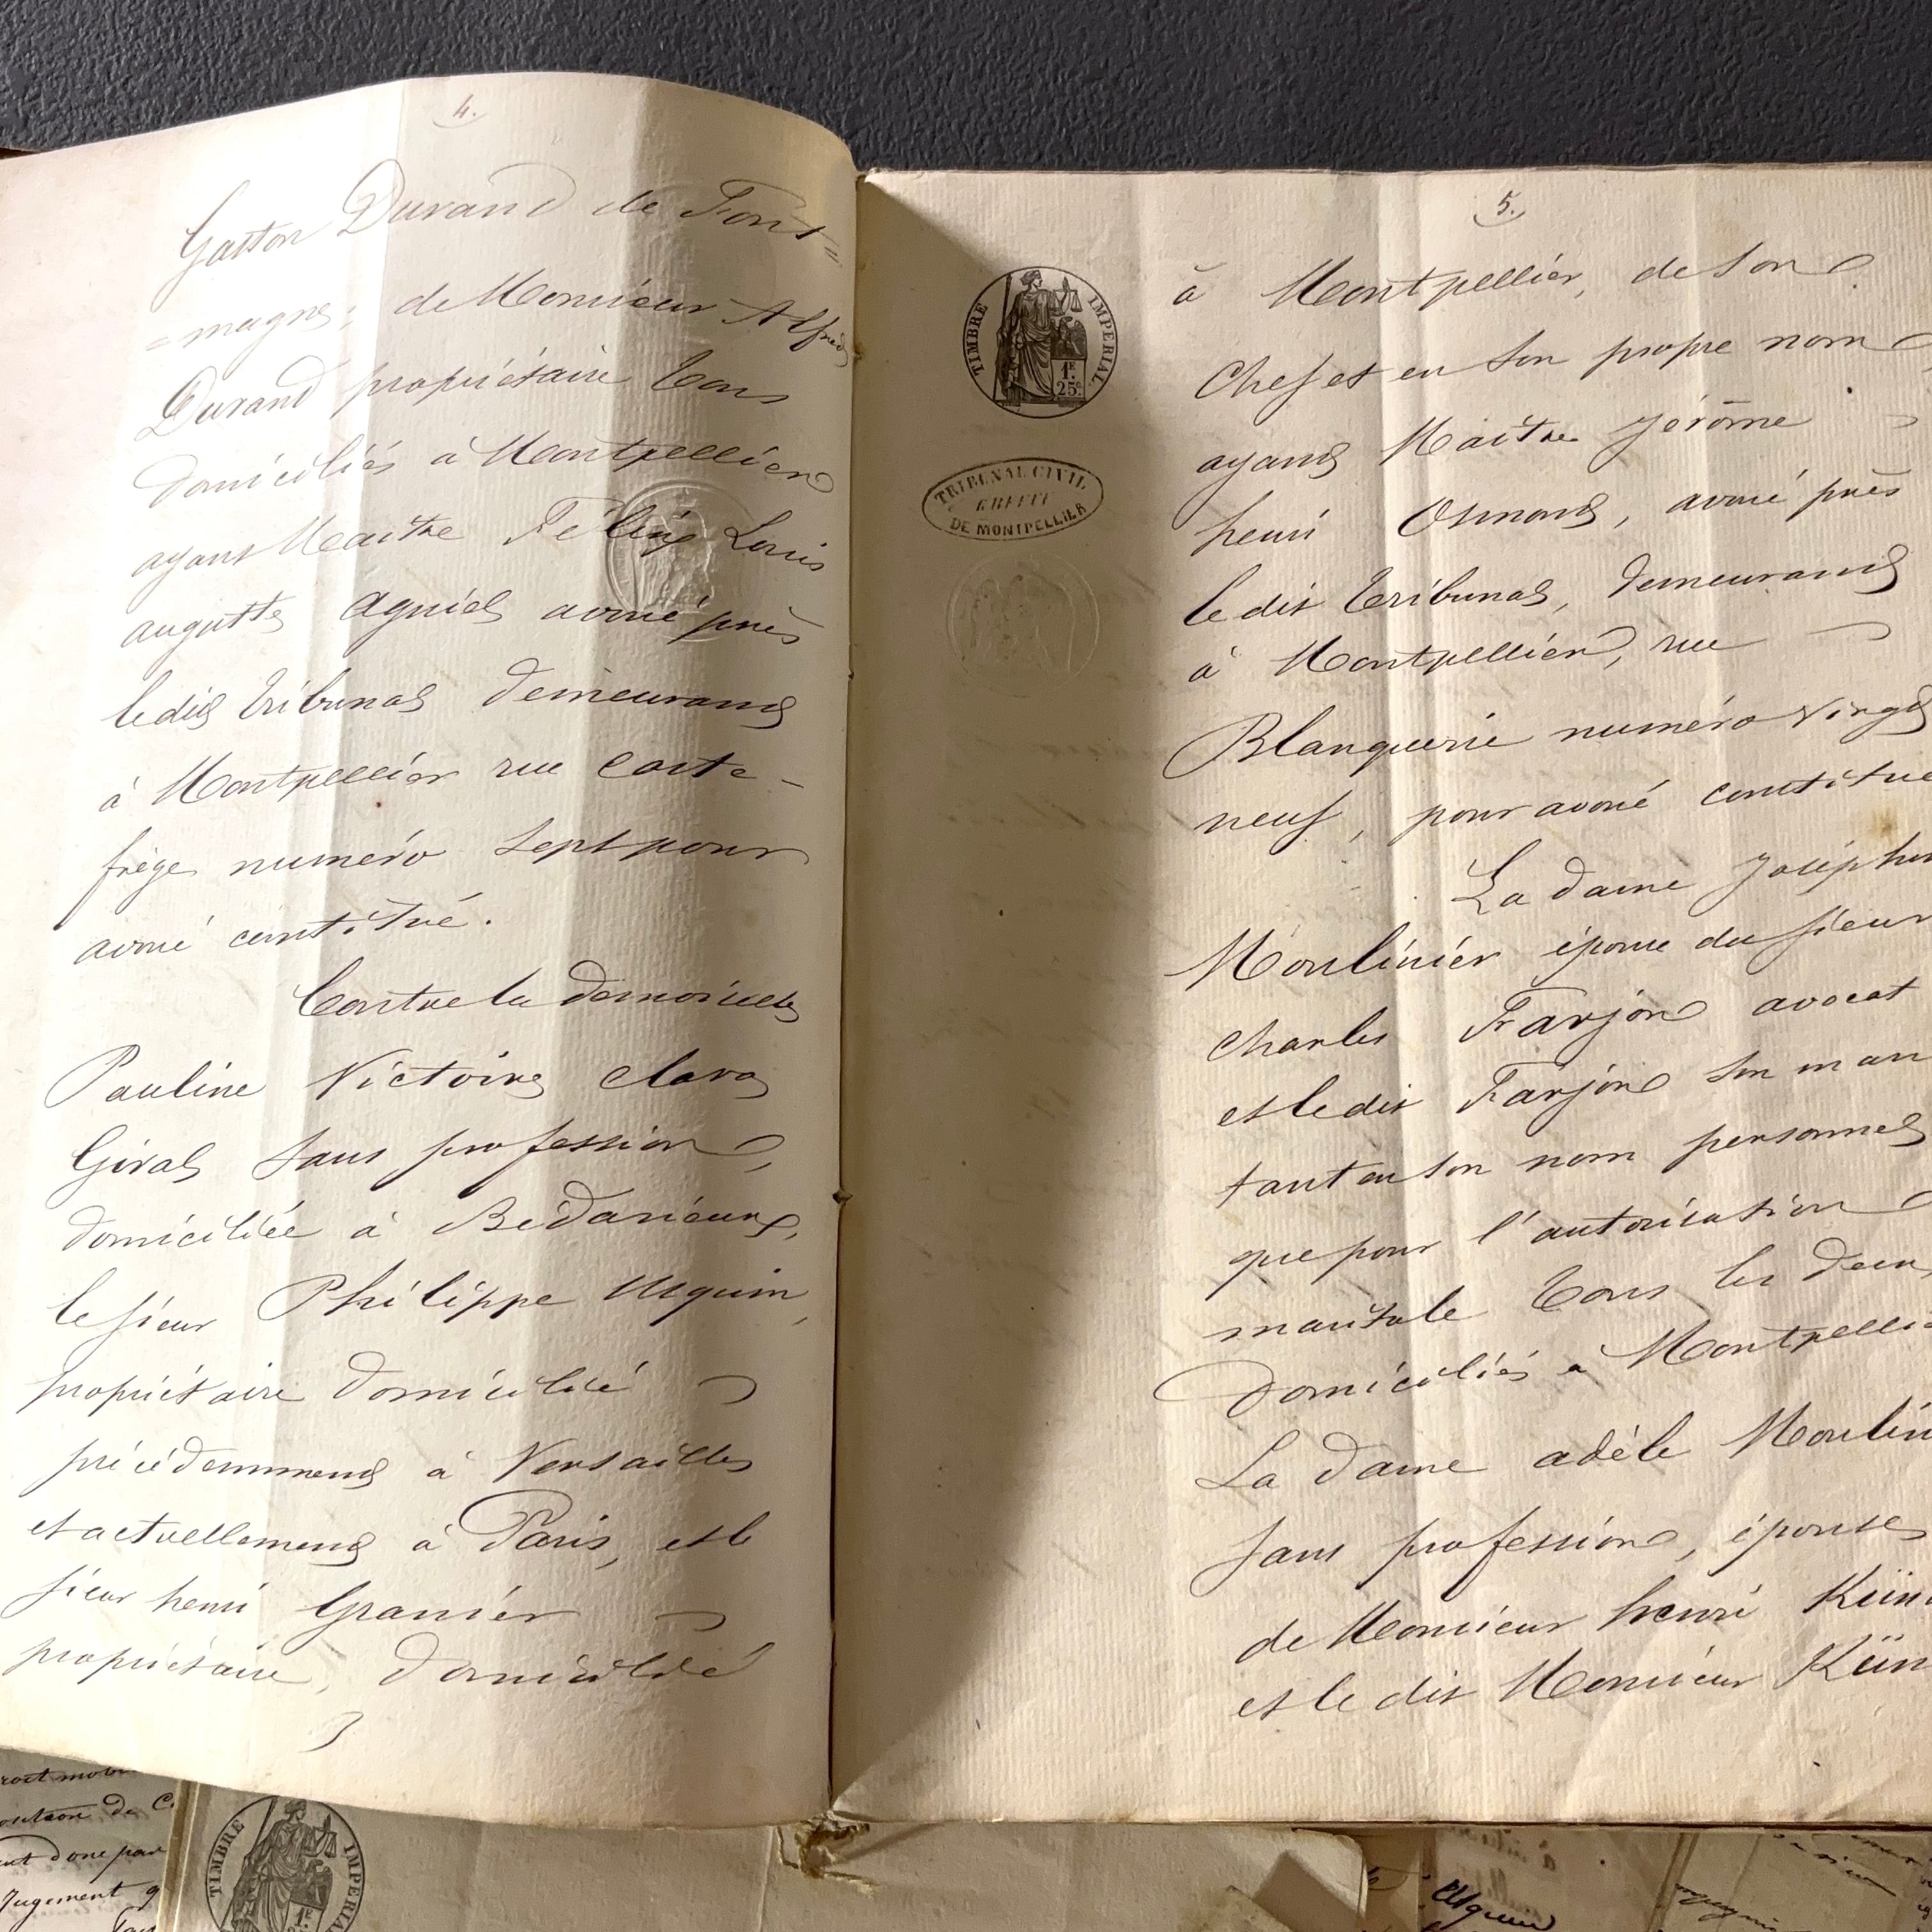 4.
Gaston Durand de Font=
=magne, de Monsieur Alfred
Durand propriétaire tous
domiciliés à Montpellier
ayant Maitre Félix Louis
auguste Agniel avoué près
ledit tribunal demeurant
à Montpellier rue Caste-
frège numéro sept pour
avoué constitué.
Contre la demoiselle
Pauline Victoire Clara
Giral sans profession,
domiciliée à Bédarieux,
le sieur Philippe Usquin,
propriétaire domicilié
précédemment à Versailles
et actuellement à Paris, et le
sieur henri Granier
propriétaire, domicilié
5.
TIMBRE IMPERIAL
1F.
25c.
TRIBUNAL CIVIL
GREFFE
DE MONTPELLIER
à Montpellier, de son
Chef et en son propre nom,
ayant Maitre Jérôme
henri Osmond, avoué près
ledit tribunal, demeurant
à Montpellier, rue
Blanquerie numéro vingt
neuf, pour avoué constitué
La dame Joséphin
Moulinier épouse du sieur
Charles Farjon avocat
et le dit Farjon son mari
tant en son nom personnel
que pour l'autorisation
maritale tous les deux
Domiciliés à Montpellie
La dame adèle Moulin
sans profession, épouse
de Monsieur henri Kün
et le dit Monsieur Kün
TIMBRE IMPERIA
1F.
de C
donc par
Jugement q
Usquin